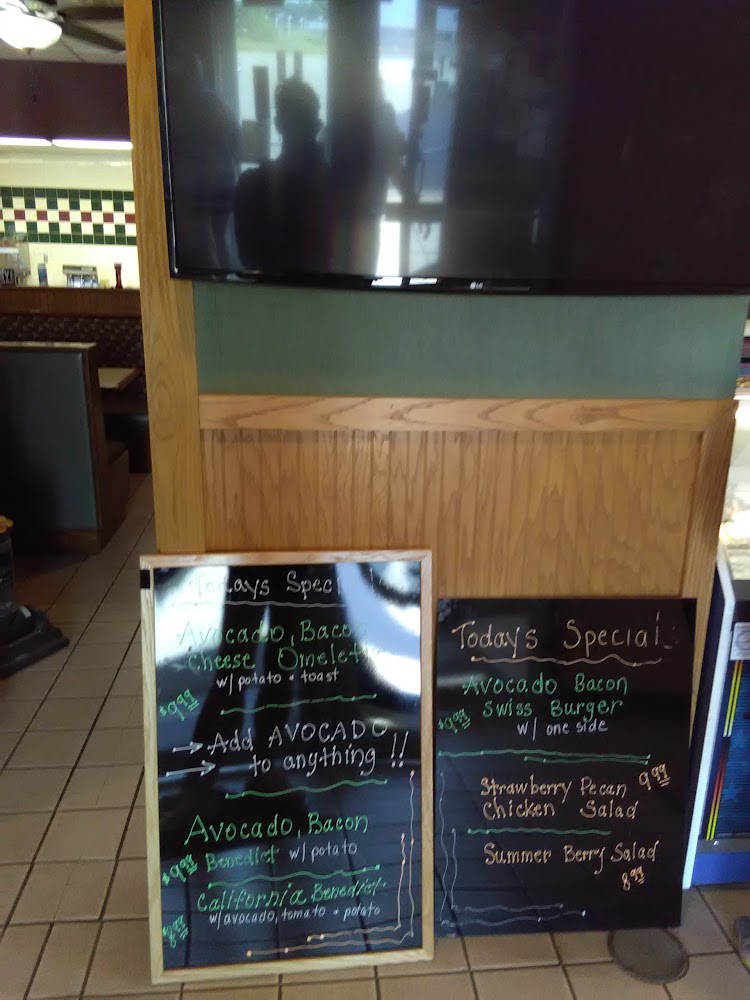 LG
Todays Special
Avocado, Bacon
Cheese Omelett
w/ potato + toast
$9.99
Add AVOCADO
to anything!!
Avocado, Bacon
Benedict w/ potato
$9.99
California Benedict
w/ avocado, tomato + potato
$8.99
Todays Specials
Avocado Bacon
Swiss Burger
$9.99
w/ one side
Strawberry Pecan 9.99
Chicken Salad
Summer Berry Salad
8.99